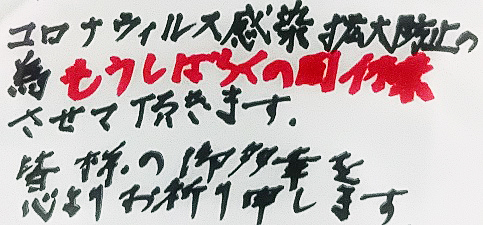 コロナウィルス感染拡大防止の
為もうしばらくの間休業
させて頂きます.
皆様.の御多幸を
心よりお祈り申します